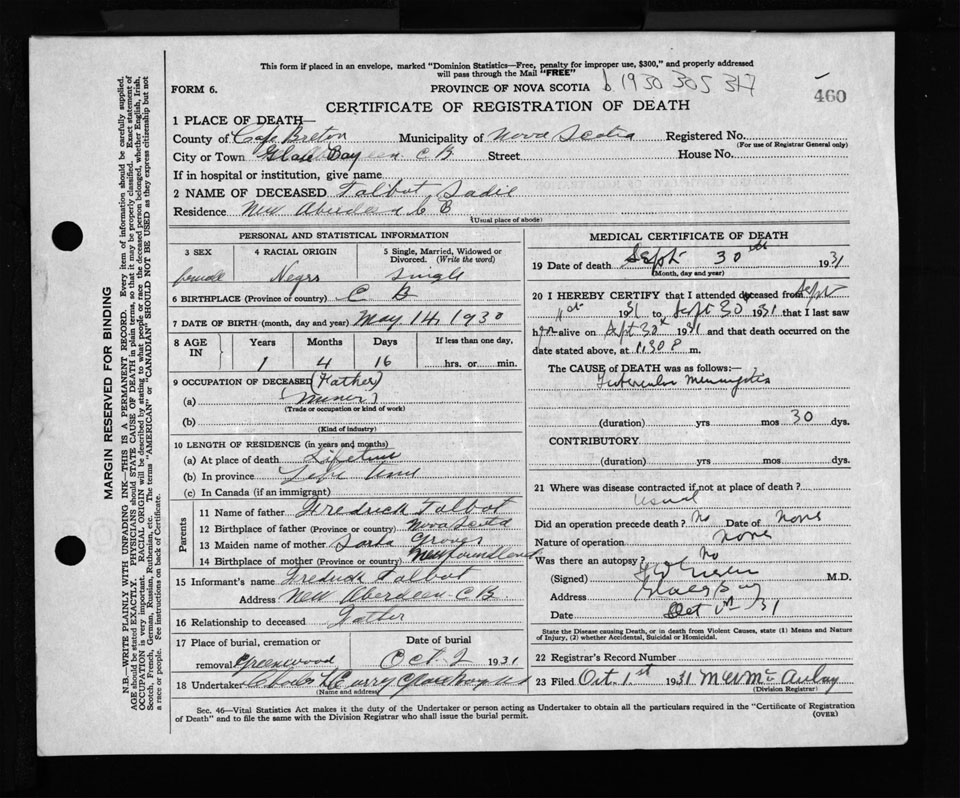 This form if placed in an envelope, marked "Dominion Statistics—Free, penalty for improper use, $300," and properly addressed
will pass through the Mail "FREE"
FORM 6.
PROVINCE OF NOVA SCOTIA b 1930 305 317
460
CERTIFICATE OF REGISTRATION OF DEATH
1 PLACE OF DEATH—
County of Cape Breton Municipality of Nova Scotia Registered No.
(For use of Registrar General only)
City or Town Glace Bay C B Street House No.
If in hospital or institution, give name
2 NAME OF DECEASED Talbot Sadie
Residence New Aberdeen C B
(Usual place of abode)
PERSONAL AND STATISTICAL INFORMATION
3 SEX 4 RACIAL ORIGIN 5 Single, Married, Widowed or Divorced. (Write the word)
female Negro Single
6 BIRTHPLACE (Province or country) C B
7 DATE OF BIRTH (month, day and year) May 14, 1930
8 AGE IN Years Months Days If less than one day,
1 4 16 hrs. or min.
9 OCCUPATION OF DECEASED (Father)
(a) Miner
(Trade or occupation or kind of work)
(b)
(Kind of industry)
10 LENGTH OF RESIDENCE (in years and months)
(a) At place of death Lifetime
(b) In province
(c) In Canada (if an immigrant)
Parents
11 Name of father Fredrick Talbot
12 Birthplace of father (Province or country) Nova Scotia
13 Maiden name of mother Groves
14 Birthplace of mother (Province or country) Newfoundland
15 Informant's name Fredrick Talbot
Address New Aberdeen C B.
16 Relationship to deceased Father
17 Place of burial, cremation or Date of burial
removal Greenwood Oct 2 1931
18 Undertaker Curry Glace Bay
(Name and address)
MEDICAL CERTIFICATE OF DEATH
19 Date of death Sept 30th 1931
(Month, day and year)
20 I HEREBY CERTIFY that I attended deceased from Sept
1931 to Sept 30th 1931 that I last saw
h alive on Sept 30th 1931 and that death occurred on
date stated above, at 11.30 P m.
The CAUSE of DEATH was as follows:—
Tubercular Meningitis
(duration) yrs mos 30 dys.
CONTRIBUTORY
(duration) yrs. mos. dys.
21 Where was disease contracted if not at place of death?
Usual
Did an operation precede death? No Date of None
Nature of operation None
Was there an autopsy? No
(Signed) M.D.
Address Glace Bay
Date Oct 31
State the Disease causing Death, or in death from Violent Causes, state (1) Means and Nature
of Injury, (2) whether Accidental, Suicidal or Homicidal.
22 Registrar's Record Number
23 Filed Oct. 1st 1931 McAulay
(Division Registrar)
Sec. 46—Vital Statistics Act makes it the duty of the Undertaker or person acting as Undertaker to obtain all the particulars required in the "Certificate of Registration
of Death" and to file the same with the Division Registrar who shall issue the burial permit.
(OVER)
MARGIN RESERVED FOR BINDING
N.B.—WRITE PLAINLY WITH UNFADING INK—THIS IS A PERMANENT RECORD. Every item of information should be carefully supplied.
AGE should be stated EXACTLY. PHYSICIANS should STATE CAUSE OF DEATH in plain terms, so that it may be properly classified. Exact statement of
OCCUPATION is very important. RACIAL ORIGIN will be described by stating to what people or race the deceased person belonged, whether English, Irish,
Scotch, French, German, Russian, Ruthenian, etc. The terms "AMERICAN" or "CANADIAN" SHOULD NOT BE USED as they express citizenship but not
a race or people. See instructions on back of Certificate.